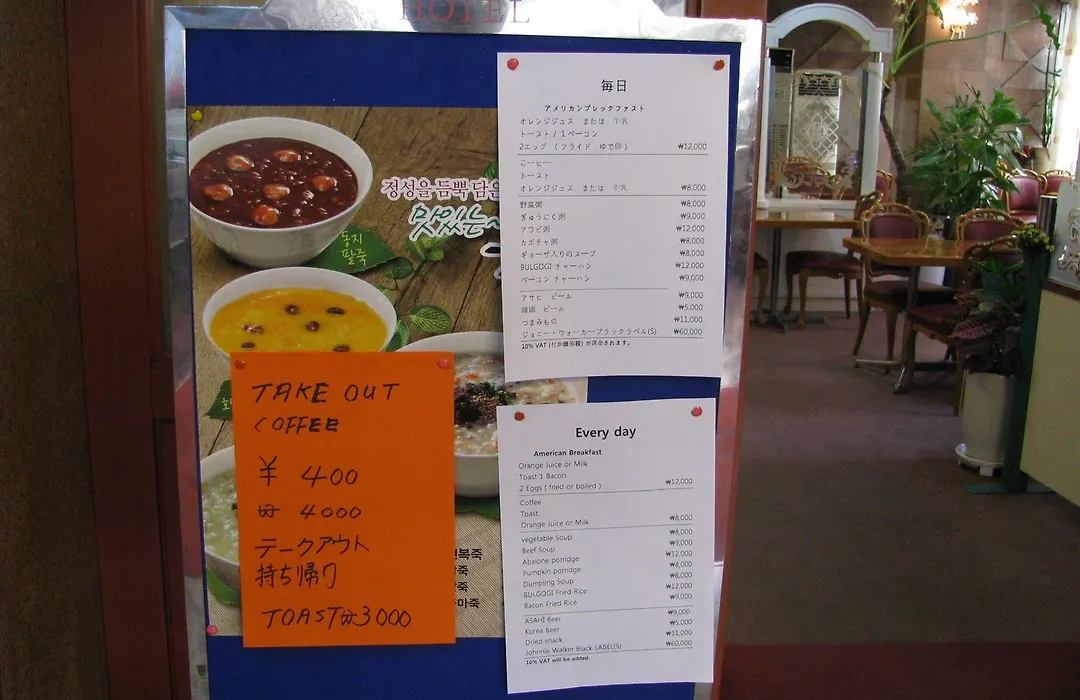 HOTEL
정성을 듬뿍 담은
맛있는
동지
팥죽
TAKE OUT
COFFEE
¥ 400
₩ 4000
テークアウト
持ち帰り
TOAST ₩3000
毎日
アメリカンブレックファスト
オレンジジュス または 牛乳
トースト / 1 ベーコン
2エッグ ( フライド ゆで卵 ) ₩12,000
こーヒー
トースト
オレンジジュス または 牛乳 ₩8,000
野菜粥 ₩8,000
ぎゅうにく粥 ₩9,000
アワビ粥 ₩12,000
カボチャ粥 ₩8,000
ギョーザ入りのスープ ₩8,000
BULGOGI チャーハン ₩12,000
ベーコン チャーハン ₩9,000
アサヒ ビール ₩9,000
韓国 ビール ₩5,000
つまみもの ₩11,000
ジョニー・ウォーカーブラックラベル(S) ₩60,000
10% VAT (付加価値税) が課金されます。
Every day
American Breakfast
Orange Juice or Milk
Toast 1 Bacon
2 Eggs ( fried or boiled ) ₩12,000
Coffee
Toast
Orange Juice or Milk ₩8,000
vegetable Soup ₩8,000
Beef Soup ₩9,000
Abalone porridge ₩12,000
Pumpkin porridge ₩8,000
Dumpling Soup ₩8,000
BULGOGI Fried Rice ₩12,000
Bacon Fried Rice ₩9,000
ASAHI Beer ₩9,000
Korea Beer ₩5,000
Dried snack ₩11,000
Johnnie Walker Black LABEL(S) ₩60,000
10% VAT will be added.